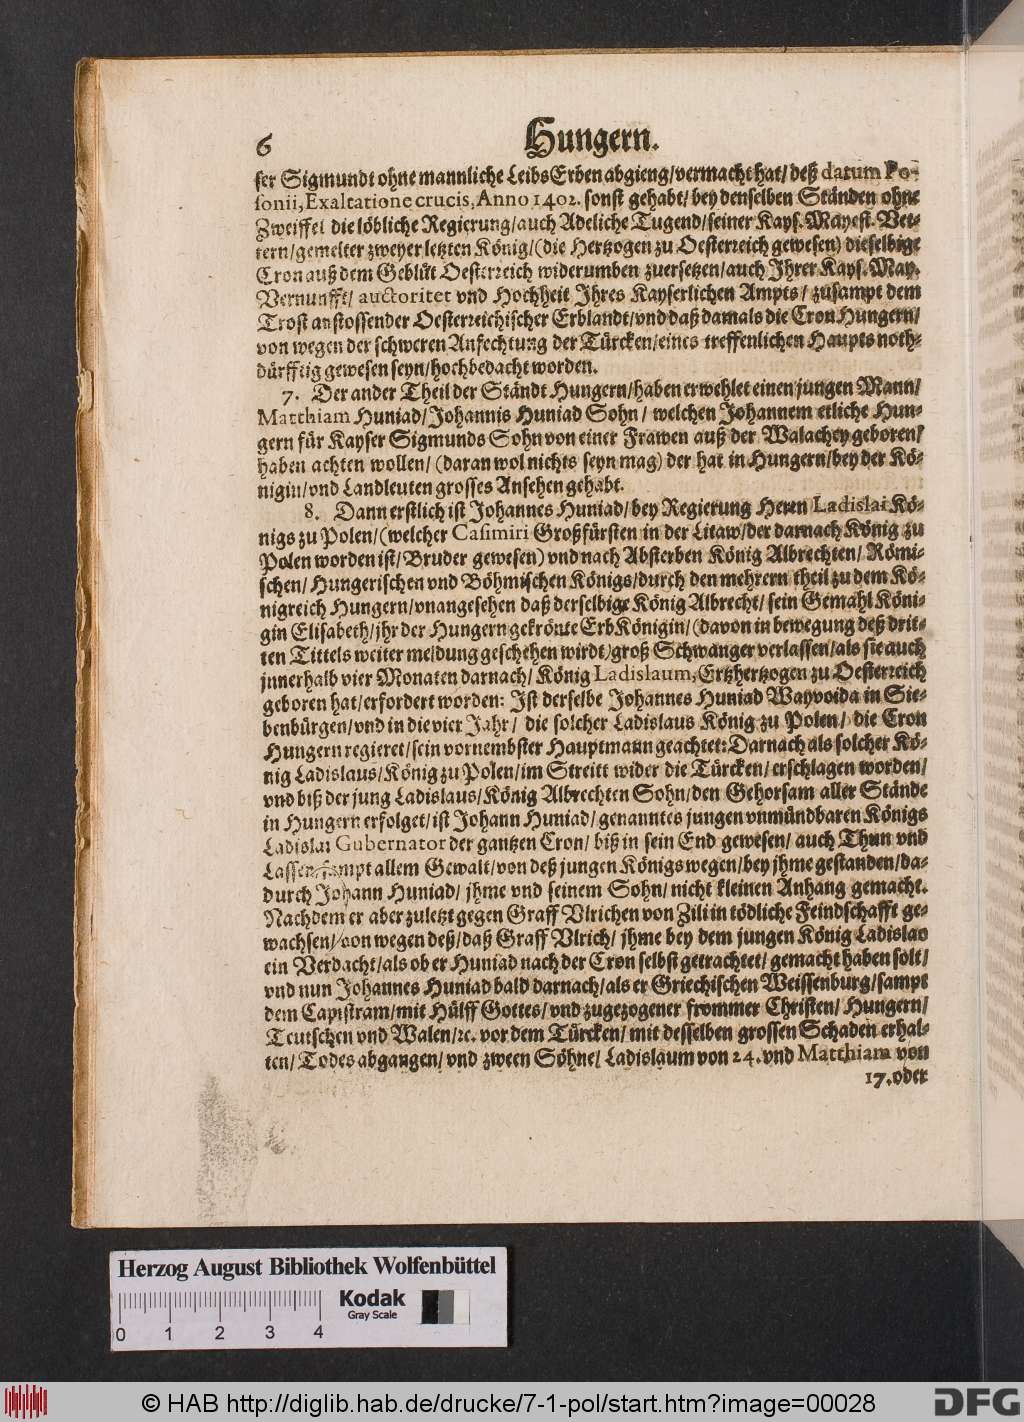 6 Hungern.
ser Sigmundt ohne mannliche LeibsErben abgieng/vermacht hat/ deß datum Po-
sonii, Exaltatione crucis, Anno 1402. sonst gehabt/ bey denselben Ständen ohne
Zweiffel die löbliche Regierung/auch Adeliche Tugend/seiner Kays. Mayest. Vet-
tern/gemelter zweyer letzten König/(die Hertzogen zu Oesterreich gewesen) dieselbige
Cron auß dem Geblüt Oesterreich widerumben zuersetzen/auch Ihrer Kays. May.
Vernunfft/ auctoritet vnd Hochheit Ihres Kayserlichen Ampts/ zusampt dem
Trost anstossender Oesterreichischer Erblandt/vnd daß damals die Cron Hungern/
von wegen der schweren Anfechtung der Türcken/eines treffenlichen Haupts noth-
dürfftig gewesen seyn/hochbedacht worden.
7. Der ander Theil der Ständt Hungern/haben erwehlet einen jungen Mann/
Matthiam Huniad/Johannis Huniad Sohn/ welchen Johannem etliche Hun-
gern für Kayser Sigmunds Sohn von einer Frawen auß der Walachey geboren/
haben achten wollen/ (daran wol nichts seyn mag) der hat in Hungern/bey der Kö-
nigin/vnd Landleuten grosses Ansehen gehabt.
8. Dann erstlich ist Johannes Huniad/bey Regierung Herrn Ladislai Kö-
nigs zu Polen/(welcher Casimiri Großfürsten in der Litaw/der darnach König zu
Polen worden ist/Bruder gewesen) vnd nach Absterben König Albrechten/ Römi-
schen/ Hungerischen vnd Böhmischen Königs/durch den mehrern theil zu dem Kö-
nigreich Hungern/vnangesehen daß derselbige König Albrecht/ sein Gemahl Köni-
gin Elisabeth/jhr der Hungern gekrönte ErbKönigin/(davon in bewegung deß drit-
ten Tittels weiter meldung geschehen wirdt)groß Schwanger verlassen/als sie auch
jnnerhalb vier Monaten darnach/ König Ladislaum, Ertzhertzogen zu Oesterreich
geboren hat/erfordert worden: Ist derselbe Johannes Huniad Wayvoida in Sie-
benbürgen/vnd in die vier Jahr/ die solcher Ladislaus König zu Polen/ die Cron
Hungern regieret/sein vornembster Hauptmann geachtet: Darnach als solcher Kö-
nig Ladislaus/König zu Polen/im Streitt wider die Türcken/erschlagen worden/
vnd biß der jung Ladislaus/König Albrechten Sohn/den Gehorsam aller Stände
in Hungern erfolget/ist Johann Huniad/genanntes jungen vnmündbaren Königs
Ladislai Gubernator der gantzen Cron/ biß in sein End gewesen/ auch Thun vnd
Lassen sampt allem Gewalt/von deß jungen Königs wegen/bey jhme gestanden/da-
durch Johann Huniad/ jhme vnd seinem Sohn/ nicht kleinen Anhang gemacht.
Nachdem er aber zuletzt gegen Graff Vlrichen von Zili in tödliche Feindschafft ge-
wachsen/von wegen deß/daß Graff Vlrich/ jhme bey dem jungen König Ladislao
ein Verdacht/als ob er Huniad nach der Cron selbst getrachtet/gemacht haben solt/
vnd nun Johannes Huniad bald darnach/als er Griechischen Weissenburg/sampt
dem Capistram/mit Hülff Gottes/vnd zugezogener frommer Christen/ Hungern/
Teutschen vnd Walen/ꝛc. vor dem Türcken/ mit desselben grossen Schaden erhal-
ten/ Todes abgangen/ vnd zween Söhne/ Ladislaum von 24. vnd Matthiam von
17. oder
Herzog August Bibliothek Wolfenbüttel
Kodak
Gray Scale
0 1 2 3 4
© HAB http://diglib.hab.de/drucke/7-1-pol/start.htm?image=00028
DFG